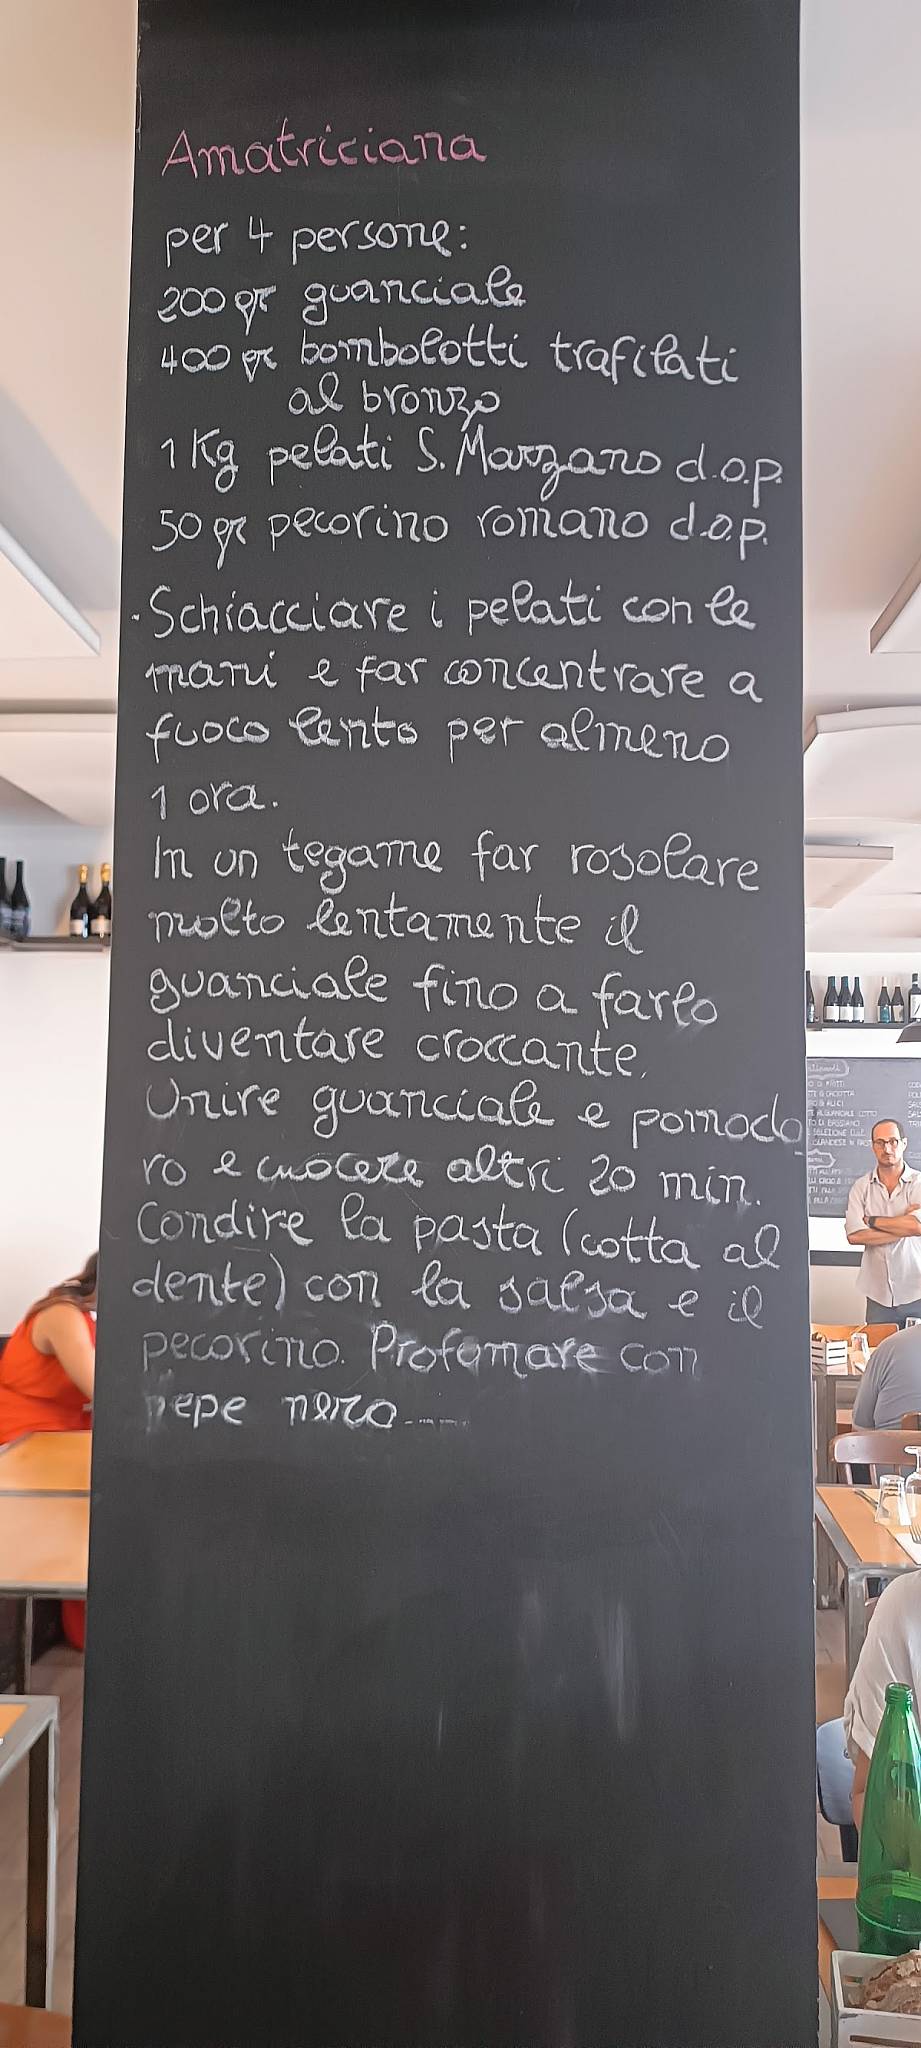 Amatriciana
per 4 persone:
200 gr guanciale
400 gr bombolotti trafilati
al bronzo
1 Kg pelati S. Marzano d.o.p.
50 gr pecorino romano d.o.p.
·Schiacciare i pelati con le
mani e far concentrare a
fuoco lento per almeno
1 ora.
In un tegame far rosolare
molto lentamente il
guanciale fino a farlo
diventare croccante.
Unire guanciale e pomodo_
ro e cuocere altri 20 min.
Condire la pasta (cotta al
dente) con la salsa e il
pecorino. Profumare con
pepe nero......